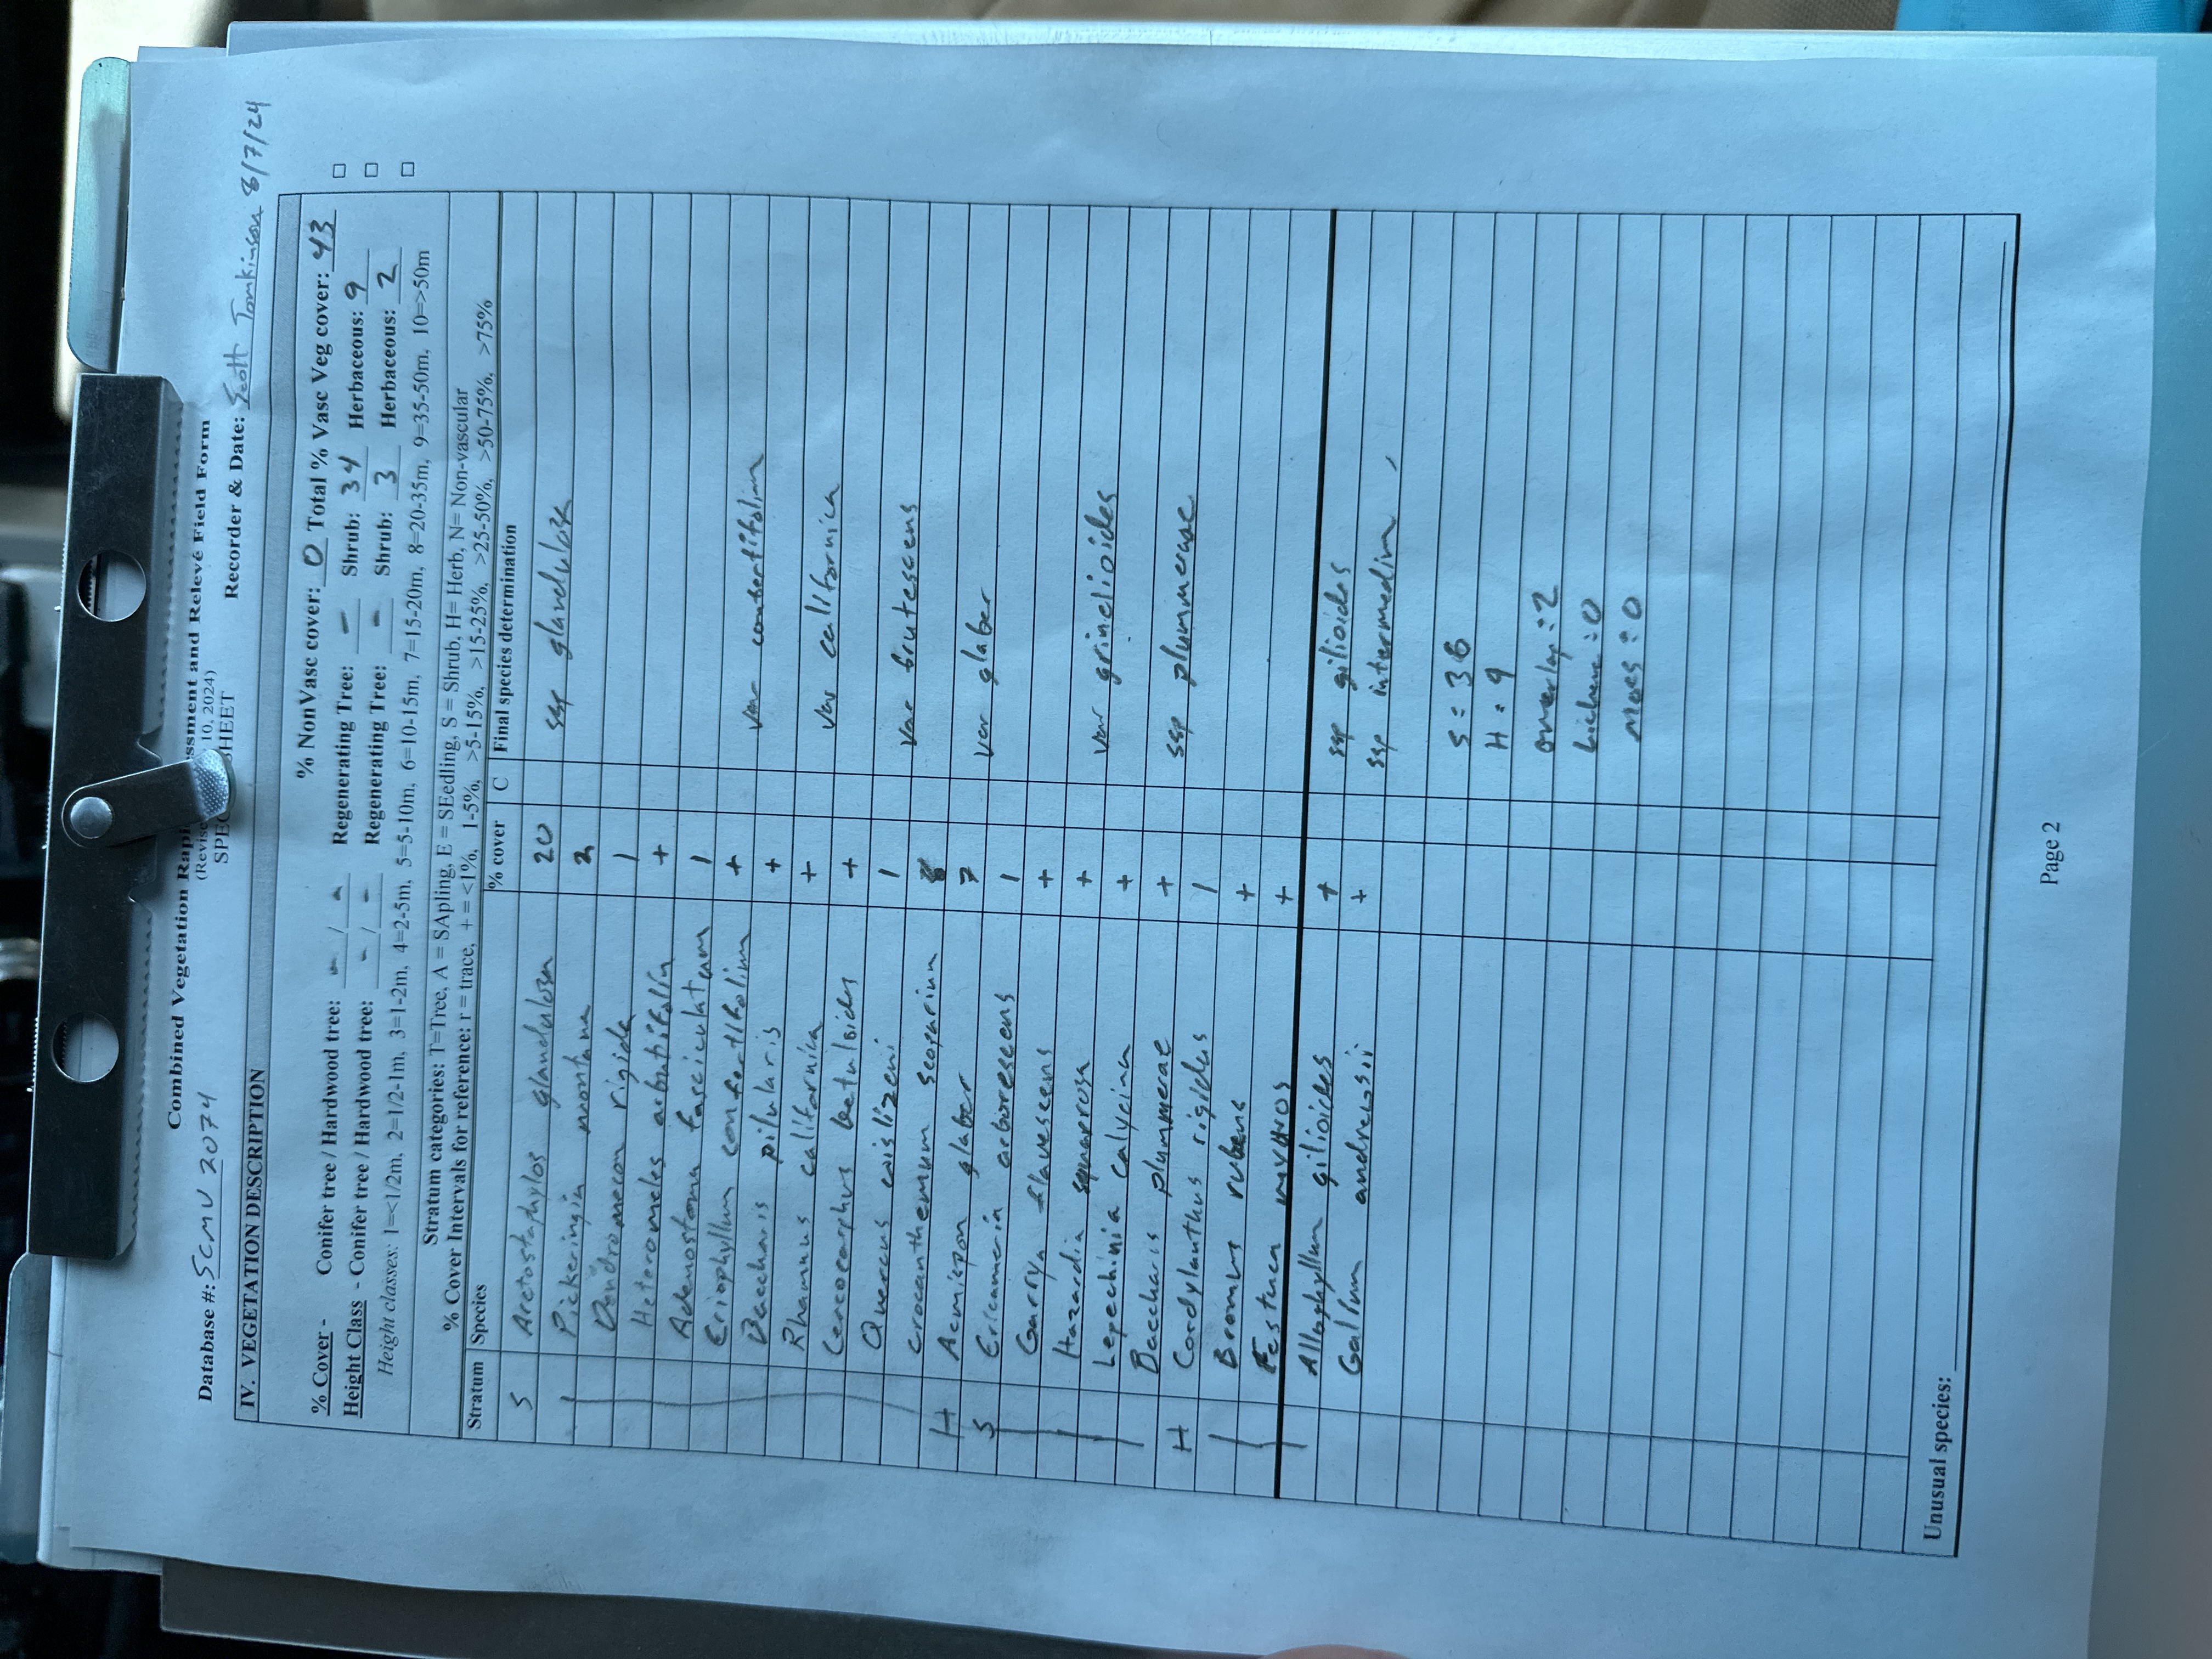 Combined Vegetation Rapi ssment and Relevé Field Form
(Revise 10, 2024)
SPEC SHEET
Database #: SCMU 2074 Recorder & Date: Scott Tomkinson 8/7/24
IV. VEGETATION DESCRIPTION
% NonVasc cover: 0 Total % Vasc Veg cover: 43
% Cover - Conifer tree / Hardwood tree: - / - Regenerating Tree: - Shrub: 34 Herbaceous: 9 □
Height Class - Conifer tree / Hardwood tree: - / - Regenerating Tree: - Shrub: 3 Herbaceous: 2 □
Height classes: 1=<1/2m, 2=1/2-1m, 3=1-2m, 4=2-5m, 5=5-10m, 6=10-15m, 7=15-20m, 8=20-35m, 9=35-50m, 10=>50m □
Stratum categories: T=Tree, A = SApling, E = SEedling, S = Shrub, H= Herb, N= Non-vascular
% Cover Intervals for reference: r = trace, + = <1%, 1-5%, >5-15%, >15-25%, >25-50%, >50-75%, >75%
Stratum Species % cover C Final species determination
S Arctostaphylos glandulosa 20 ssp glandulosa
Pickeringia montana 2
Dendromecon rigida 1
Heteromeles arbutifolia +
Adenostoma fasciculatum 1
Eriophyllum confertifolium + var confertifolium
Baccharis pilularis +
Rhamnus californica + var californica
Cercocarpus betuloides +
Quercus wislizeni 1 var frutescens
Crocanthemum scoparium
H Acmispon glaber 7 var glaber
S Ericameria arborescens 1
Garrya flavescens +
Hazardia squarrosa + var grindelioides
Lepechinia calycina +
Baccharis plummerae + ssp plummerae
H Cordylanthus rigidus 1
Bromus rubens +
Festuca myuros +
Allophyllum gilioides + ssp gilioides
Galium andrewsii + ssp intermedium
S = 36
H = 9
overlap = 2
lichen = 0
moss = 0
Unusual species:
Page 2